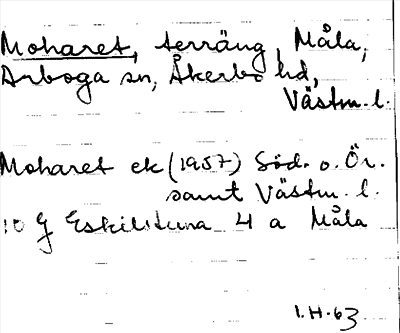 Moharet, terräng, Måla,
Arboga sn, Åkerbo hd,
Västm. l.
Moharet ek (1957) Söd. o. Ör.
samt Västm. l.
10 G Eskilstuna 4 a Måla
1.H.63